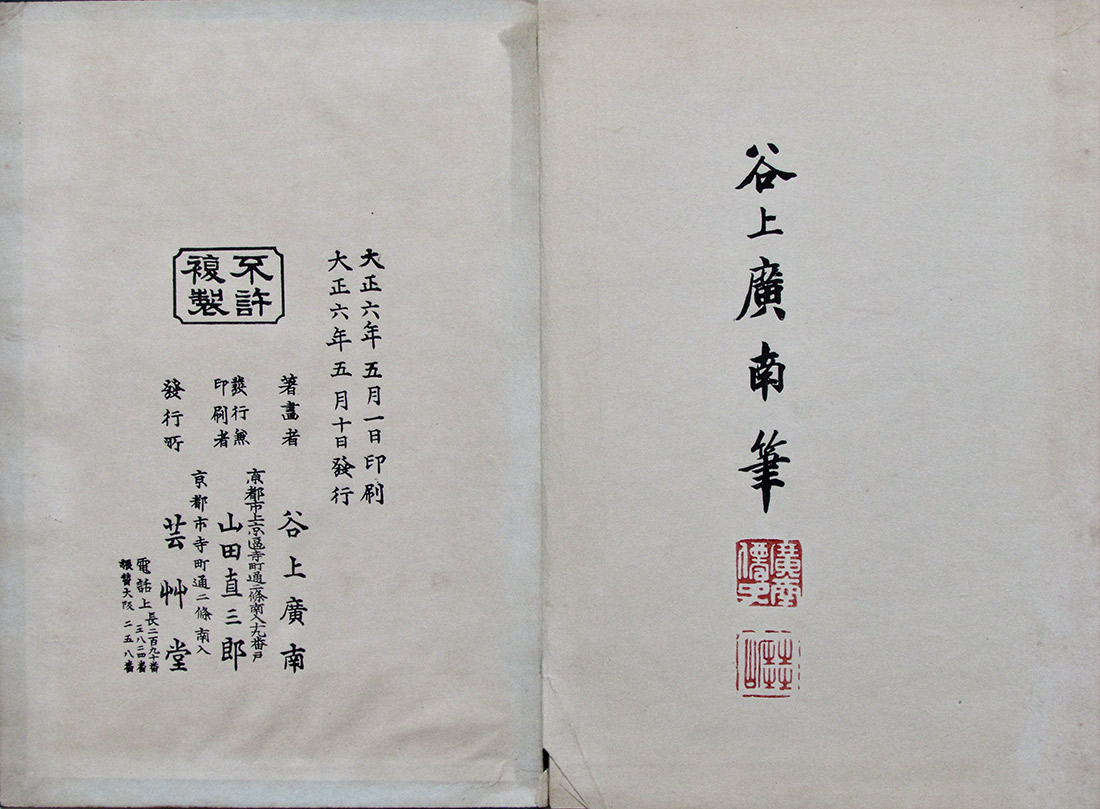 谷上廣南筆
廣南
僊史
大正六年五月一日印刷
大正六年五月十日發行
不許
複製
著畫者 谷上廣南
京都市上京區寺町通二條南入十九番戸
發行兼
印刷者 山田直三郎
京都市寺町通二條南入
發行所 芸艸堂
電話上長二百九十番
八二四番
振替大阪二五八番